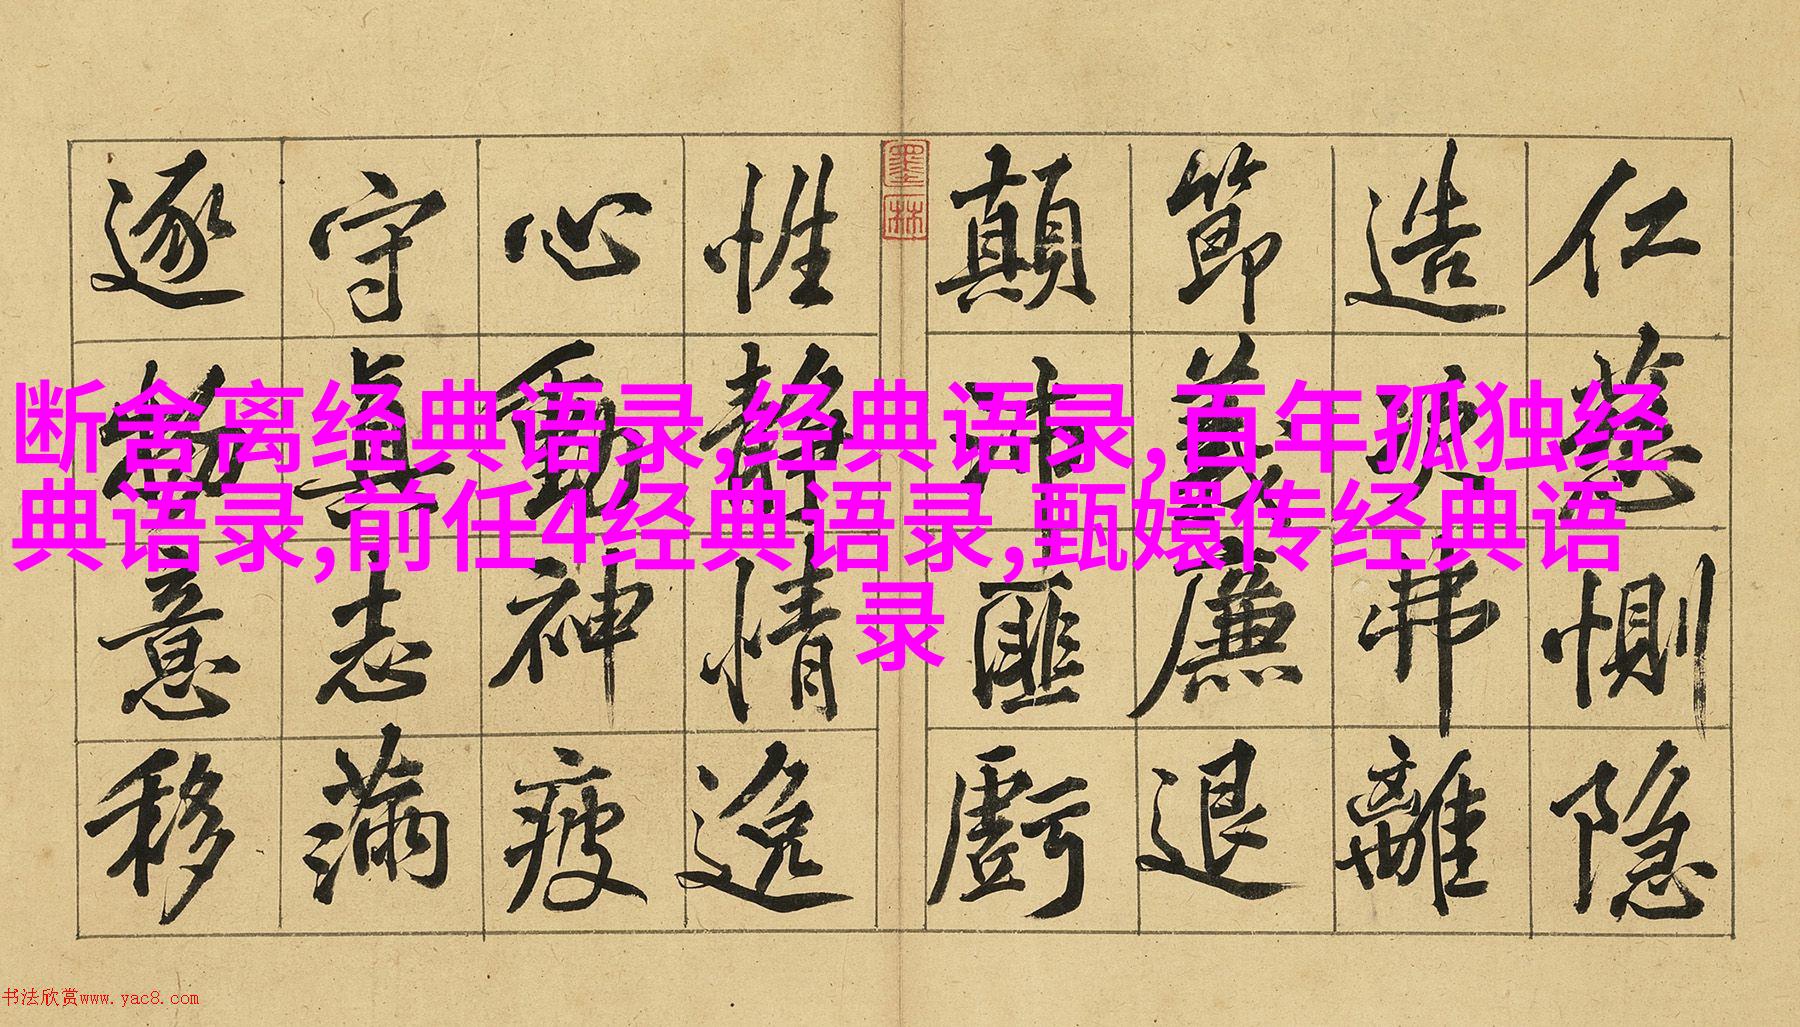 仁慈惻隱
造次弗離
節義廉退
顛沛匪虧
墨林
性靜情逸
心動神疲
守真志滿
逐物意移
断舍离经典语录,经典语录,百年孤独经
典语录,前任4经典语录,甄嬛传经典语
录
书法欣赏www.yac8.com